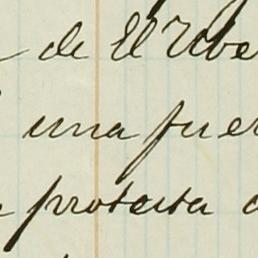 de El Ube
una fuer
protesta